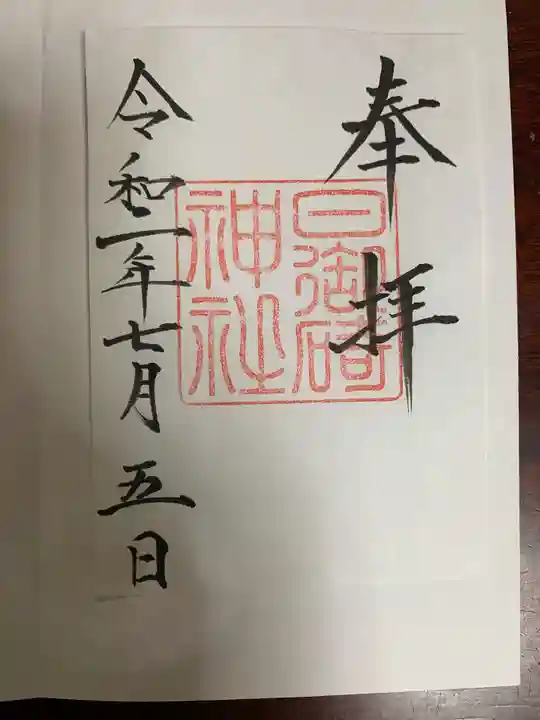 奉拝
日御碕
神社
令和二年七月五日